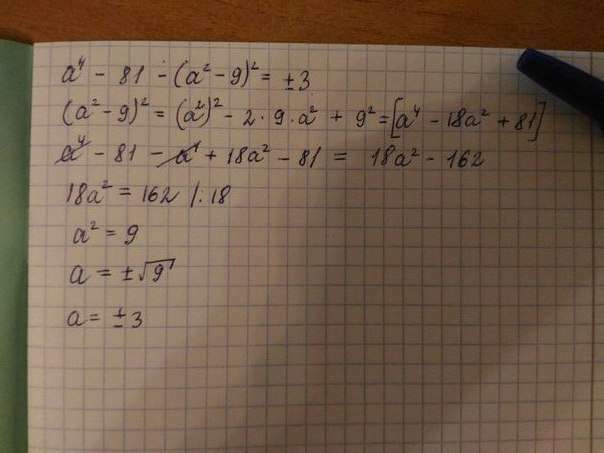 a⁴ - 81 - (a² - 9)² = ±3
(a² - 9)² = (a²)² - 2 · 9 · a² + 9² = [a⁴ - 18a² + 81]
a⁴ - 81 - a⁴ + 18a² - 81 = 18a² - 162
18a² = 162 /: 18
a² = 9
a = ±√9
a = ±3